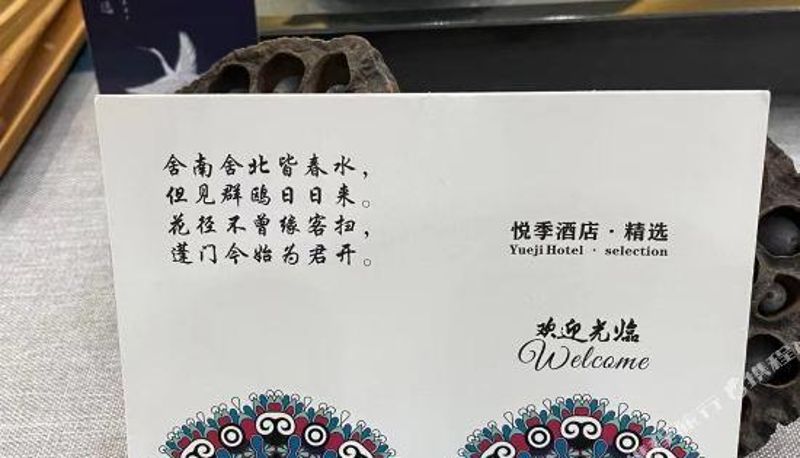 舍南舍北皆春水，
但见群鸥日日来。
花径不曾缘客扫，
蓬门今始为君开。
悦季酒店·精选
Yueji Hotel · selection
欢迎光临
Welcome